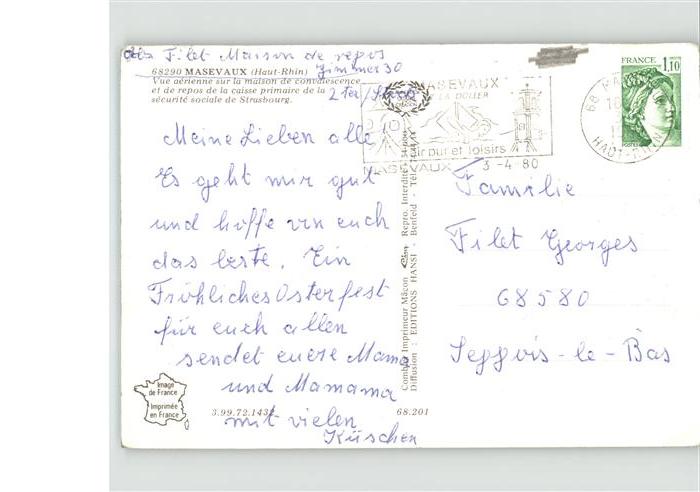 Filet Maison de repos
68290 MASEVAUX (Haut-Rhin) Zimmer 30
Vue aérienne sur la maison de convalescence
et de repos de la caisse primaire de la
sécurité sociale de Strasbourg.
2ter/Stock
Meine Lieben alle!
Es geht mir gut
und hoffe von euch
das beste. Ein
Fröhliches Osterfest
für euch allen
sendet euere Mama
und Mamama
mit vielen
Küschen
Image
de France
Imprimée
en France
3.99.72.1432
68.201
Combier Imprimeur Mâcon Cim Repro. Interdite
Diffusion : EDITIONS HANSI - Benfeld - Tél.
MASEVAUX
LA DOLLER
air pur et loisirs
MASEVAUX 3-4 80
FRANCE
1,10
POSTES
68
HAUT-RHIN
Familie
Filet Georges
68580
Seppois-le-Bas